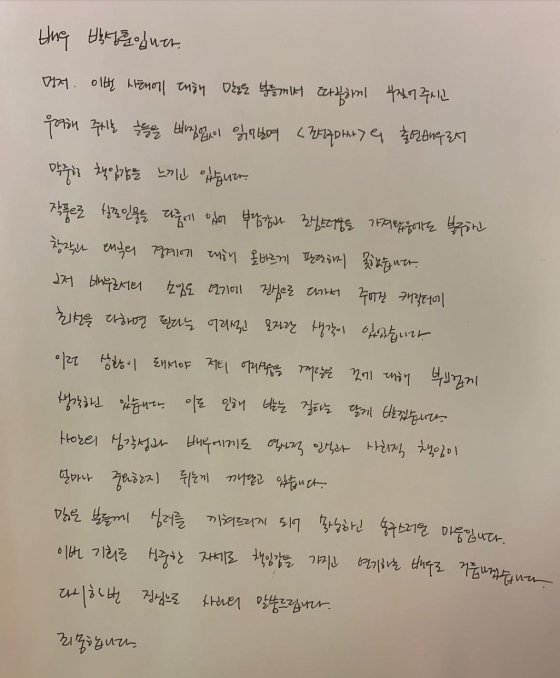 배우 박성훈입니다.
먼저. 이번 사태에 대해 많은 분들께서 따끔하게 꾸짖어 주시고
우려해 주시는 글들을 빠짐없이 읽어보며 <조선구마사>의 출연배우로서
막중한 책임감을 느끼고 있습니다.
작품으로 창조인물을 다룸에 있어 부담감과 조심스러움을 가져왔음에도 불구하고
창작과 왜곡의 경계에 대해 올바르게 판단하지 못했습니다.
그저 배우로서의 소임도 연기에 진심으로 다가서 주어진 캐릭터에
최선을 다하면 된다는 어리석고 모자란 생각이 있었습니다.
이런 상황이 돼서야 저의 어리석음을 깨달은 것에 대해 부끄럽게
생각하고 있습니다. 이로 인해 받는 질타는 달게 받겠습니다.
사안의 심각성과 배우에게도 역사적 인식과 사회적 책임이
얼마나 중요한지 뒤늦게 깨닫고 있습니다.
많은 분들께 심려를 끼쳐드리게 되어 죄송하고 송구스러운 마음입니다.
이번 기회로 성숙한 자세로 책임감을 가지고 연기하는 배우로 거듭나겠습니다.
다시 한번 진심으로 사과의 말씀드립니다.
죄송합니다.